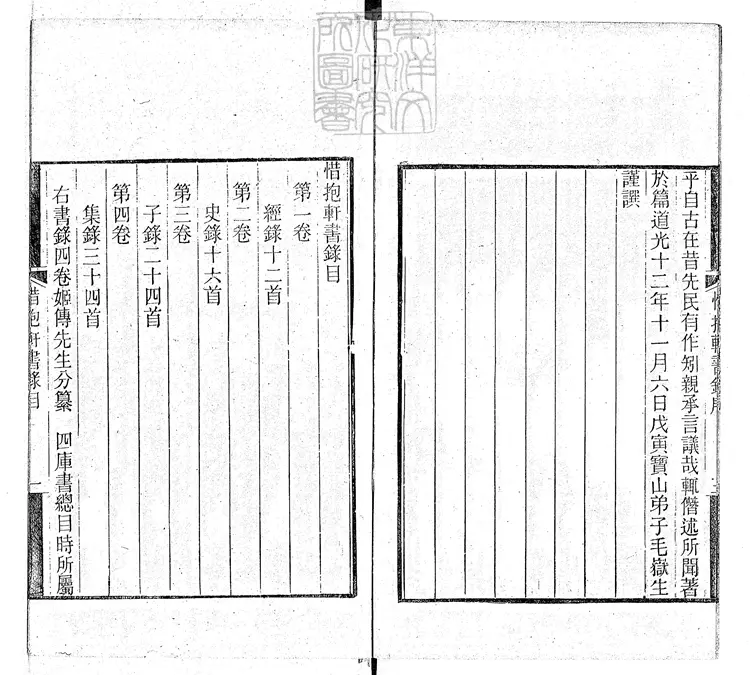 乎自古在昔先民有作矧親承言議哉輒僭述所聞著
於篇道光十二年十一月六日戊寅寶山弟子毛嶽生
謹譔
惜抱軒書錄目
第一卷
經錄十二首
第二卷
史錄十六首
第三卷
子錄二十四首
第四卷
集錄三十四首
右書錄四卷姬傳先生分纂 四庫書總目時所屬
惜抱軒書錄目 一